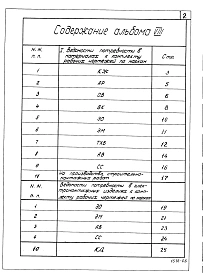 2
Содержание альбома VIII
N. N. п. п. | I. Ведомости потребности в материалах к комплекту рабочих чертежей по маркам | Стр.
1 КЖ 3
2 АР 5
3 ОВ 6
4 ВК 8
5 ЭО 10
6 ЭМ 11
7 ТХВ 12
8 АВ 14
9 СС 16
10 на производство строительно-монтажных работ 17
N. N. п. п. | Ведомости потребности в электромонтажных изделиях к комплекту рабочих чертежей по маркам
ЭО 19
2 ЭМ 21
3 АВ 23
СС 24
КД 25